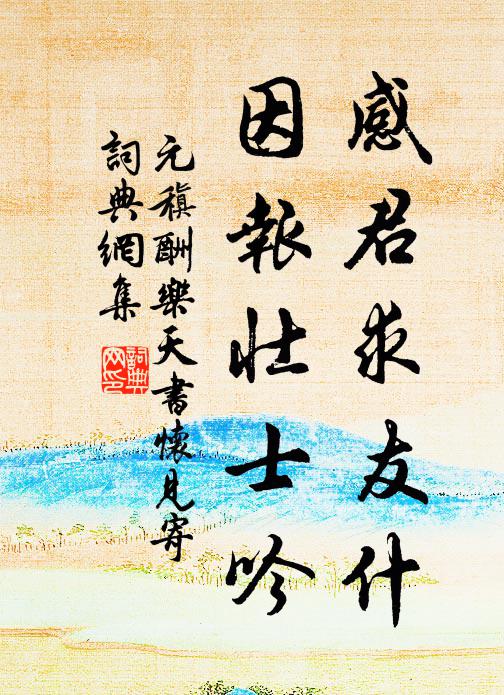 感君求友什
因報壯士吟
元稹酬樂天書懷見寄
詞典網集
詞典
网印